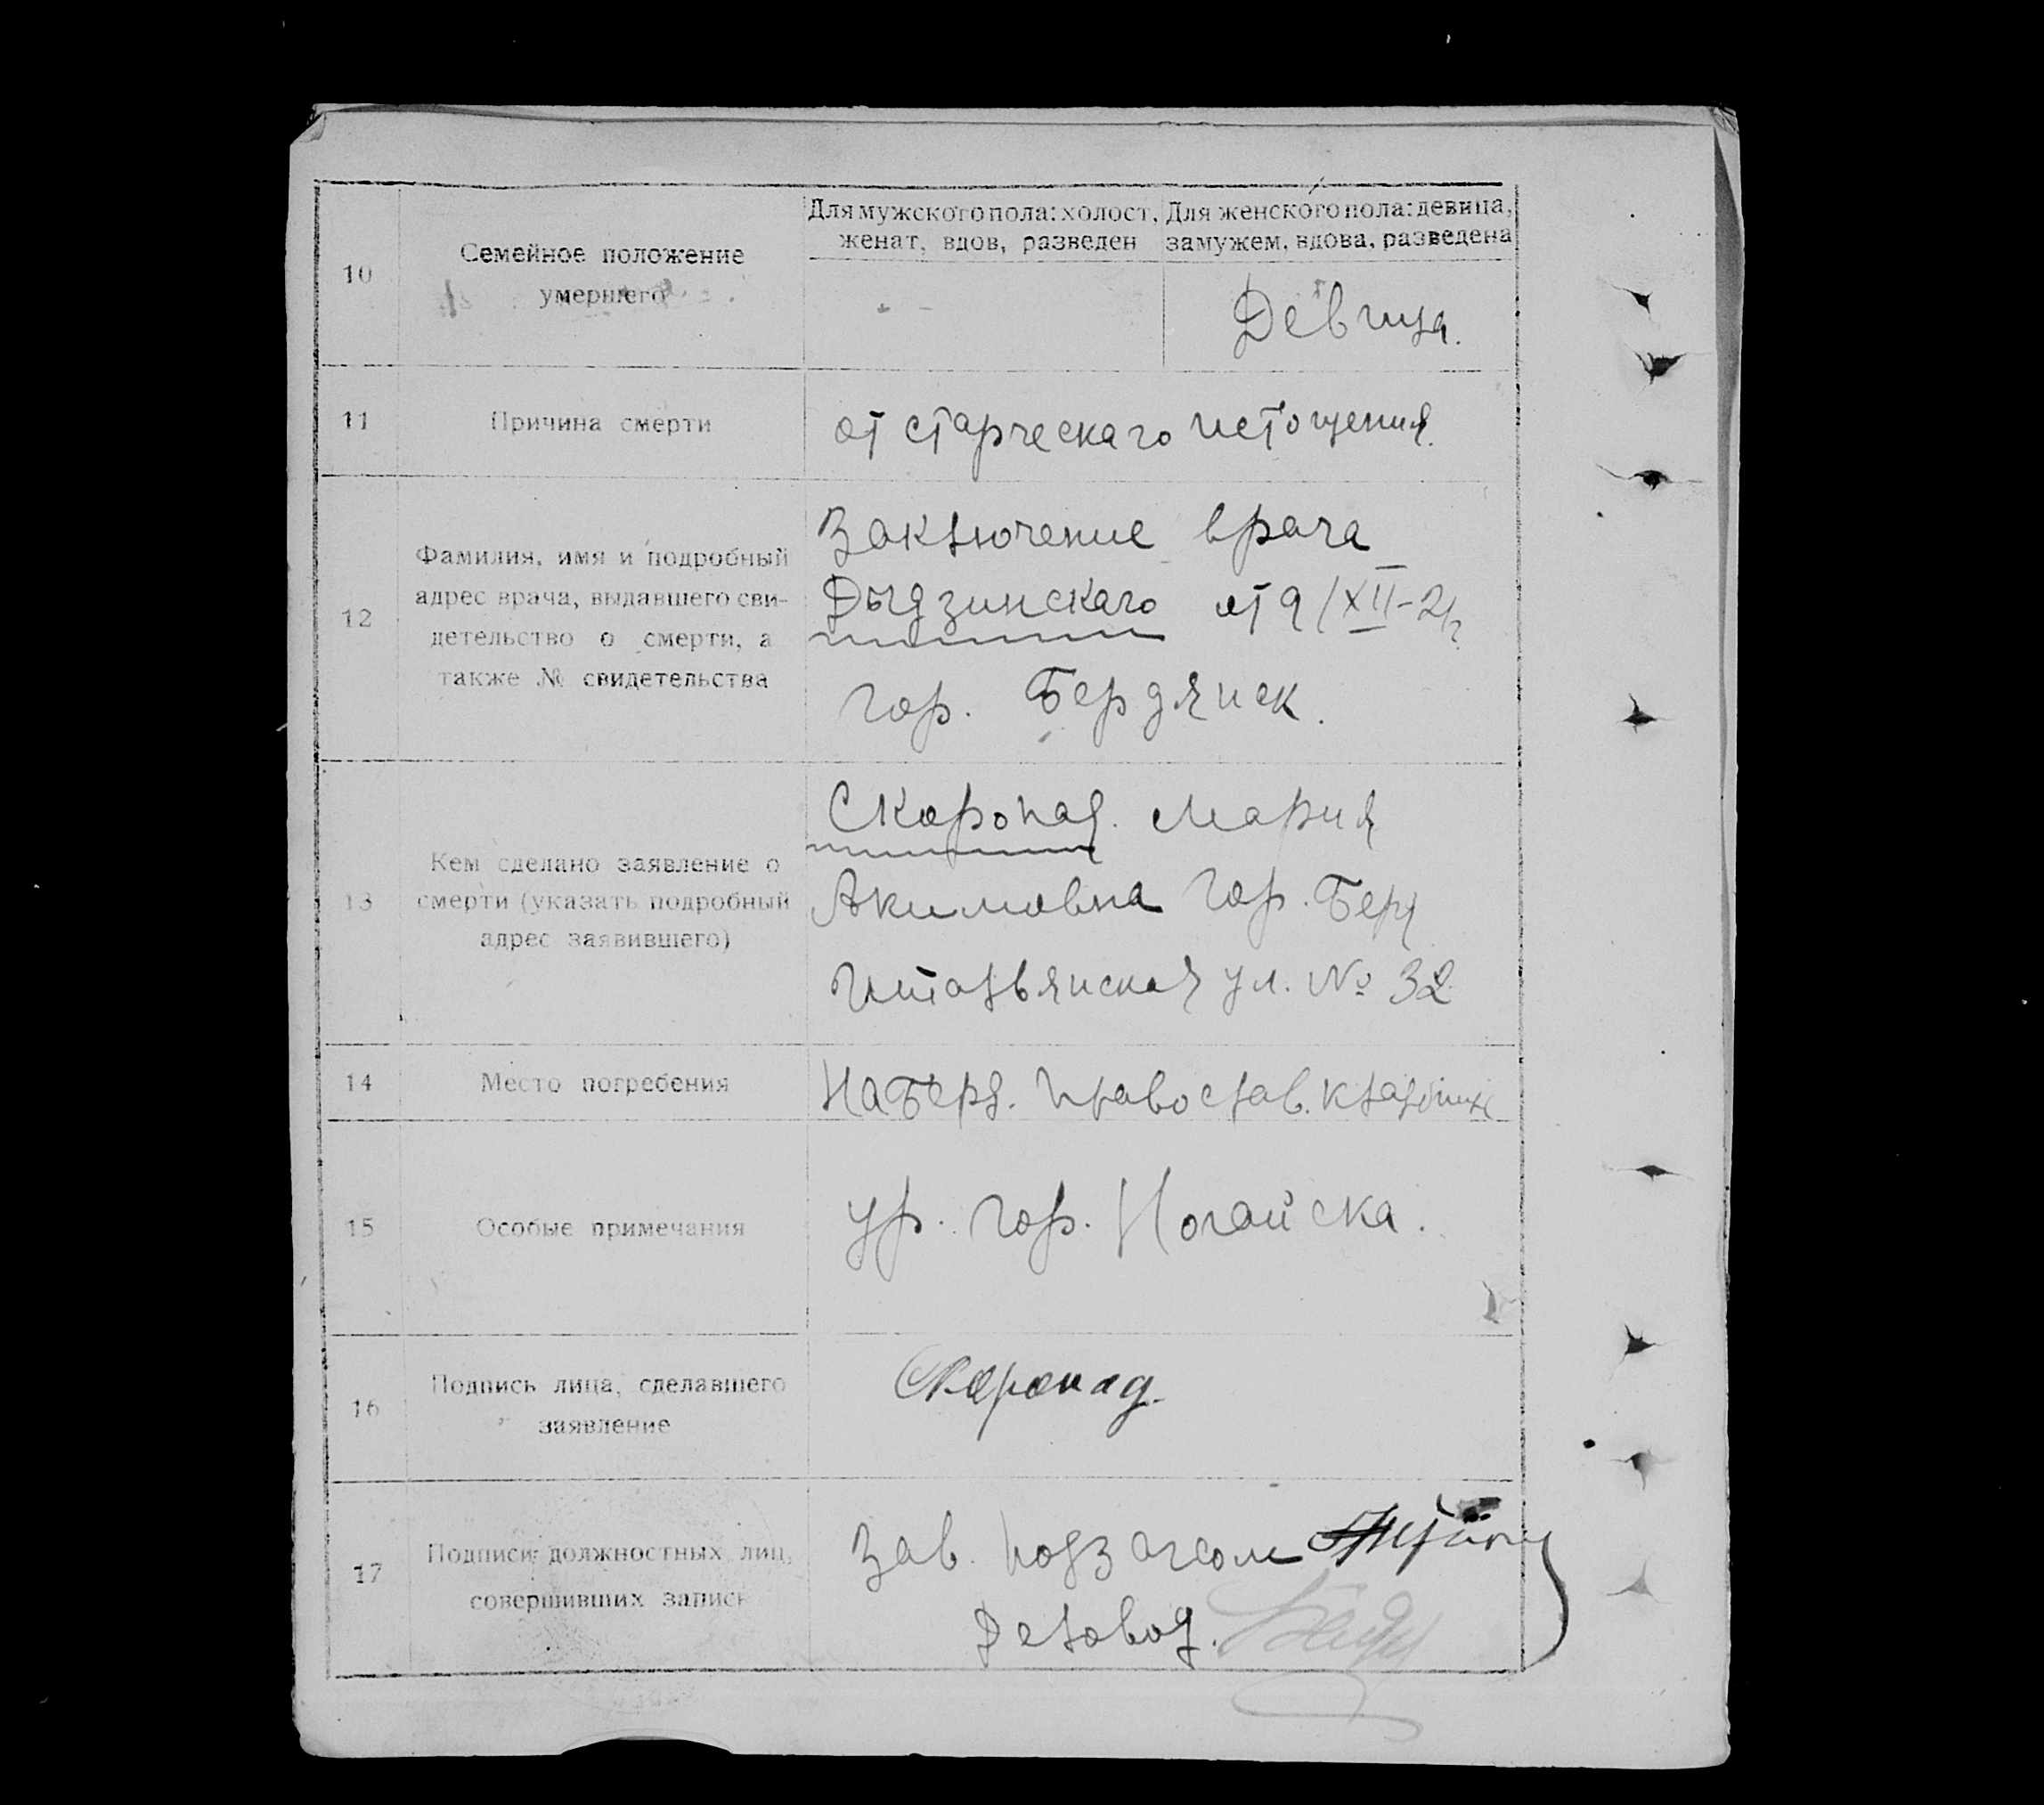 10
Семейное положение
умершего
Для мужского пола: холост,
женат, вдов, разведен
Для женского пола: девица,
замужем, вдова, разведена
Девица.
11
Причина смерти
от старческаго истощения.
12
Фамилия, имя и подробный
адрес врача, выдавшего сви-
детельство о смерти, а
также № свидетельства
Заключение врача
Дыдзинскаго от 9/XII-21г
гор. Бердянск.
13
Кем сделано заявление о
смерти (указать подробный
адрес заявившего)
Скоропад. Мария
Акимовна гор. Берд
Итальянская ул. № 32
14
Место погребения
На Берд. православ. кладбище
15
Особые примечания
ур. гор. Ногайска.
16
Подпись лица, сделавшего
заявление
Скоропад.
17
Подписи должностных лиц,
совершивших запись
Зав. подзагсом
Деловод.